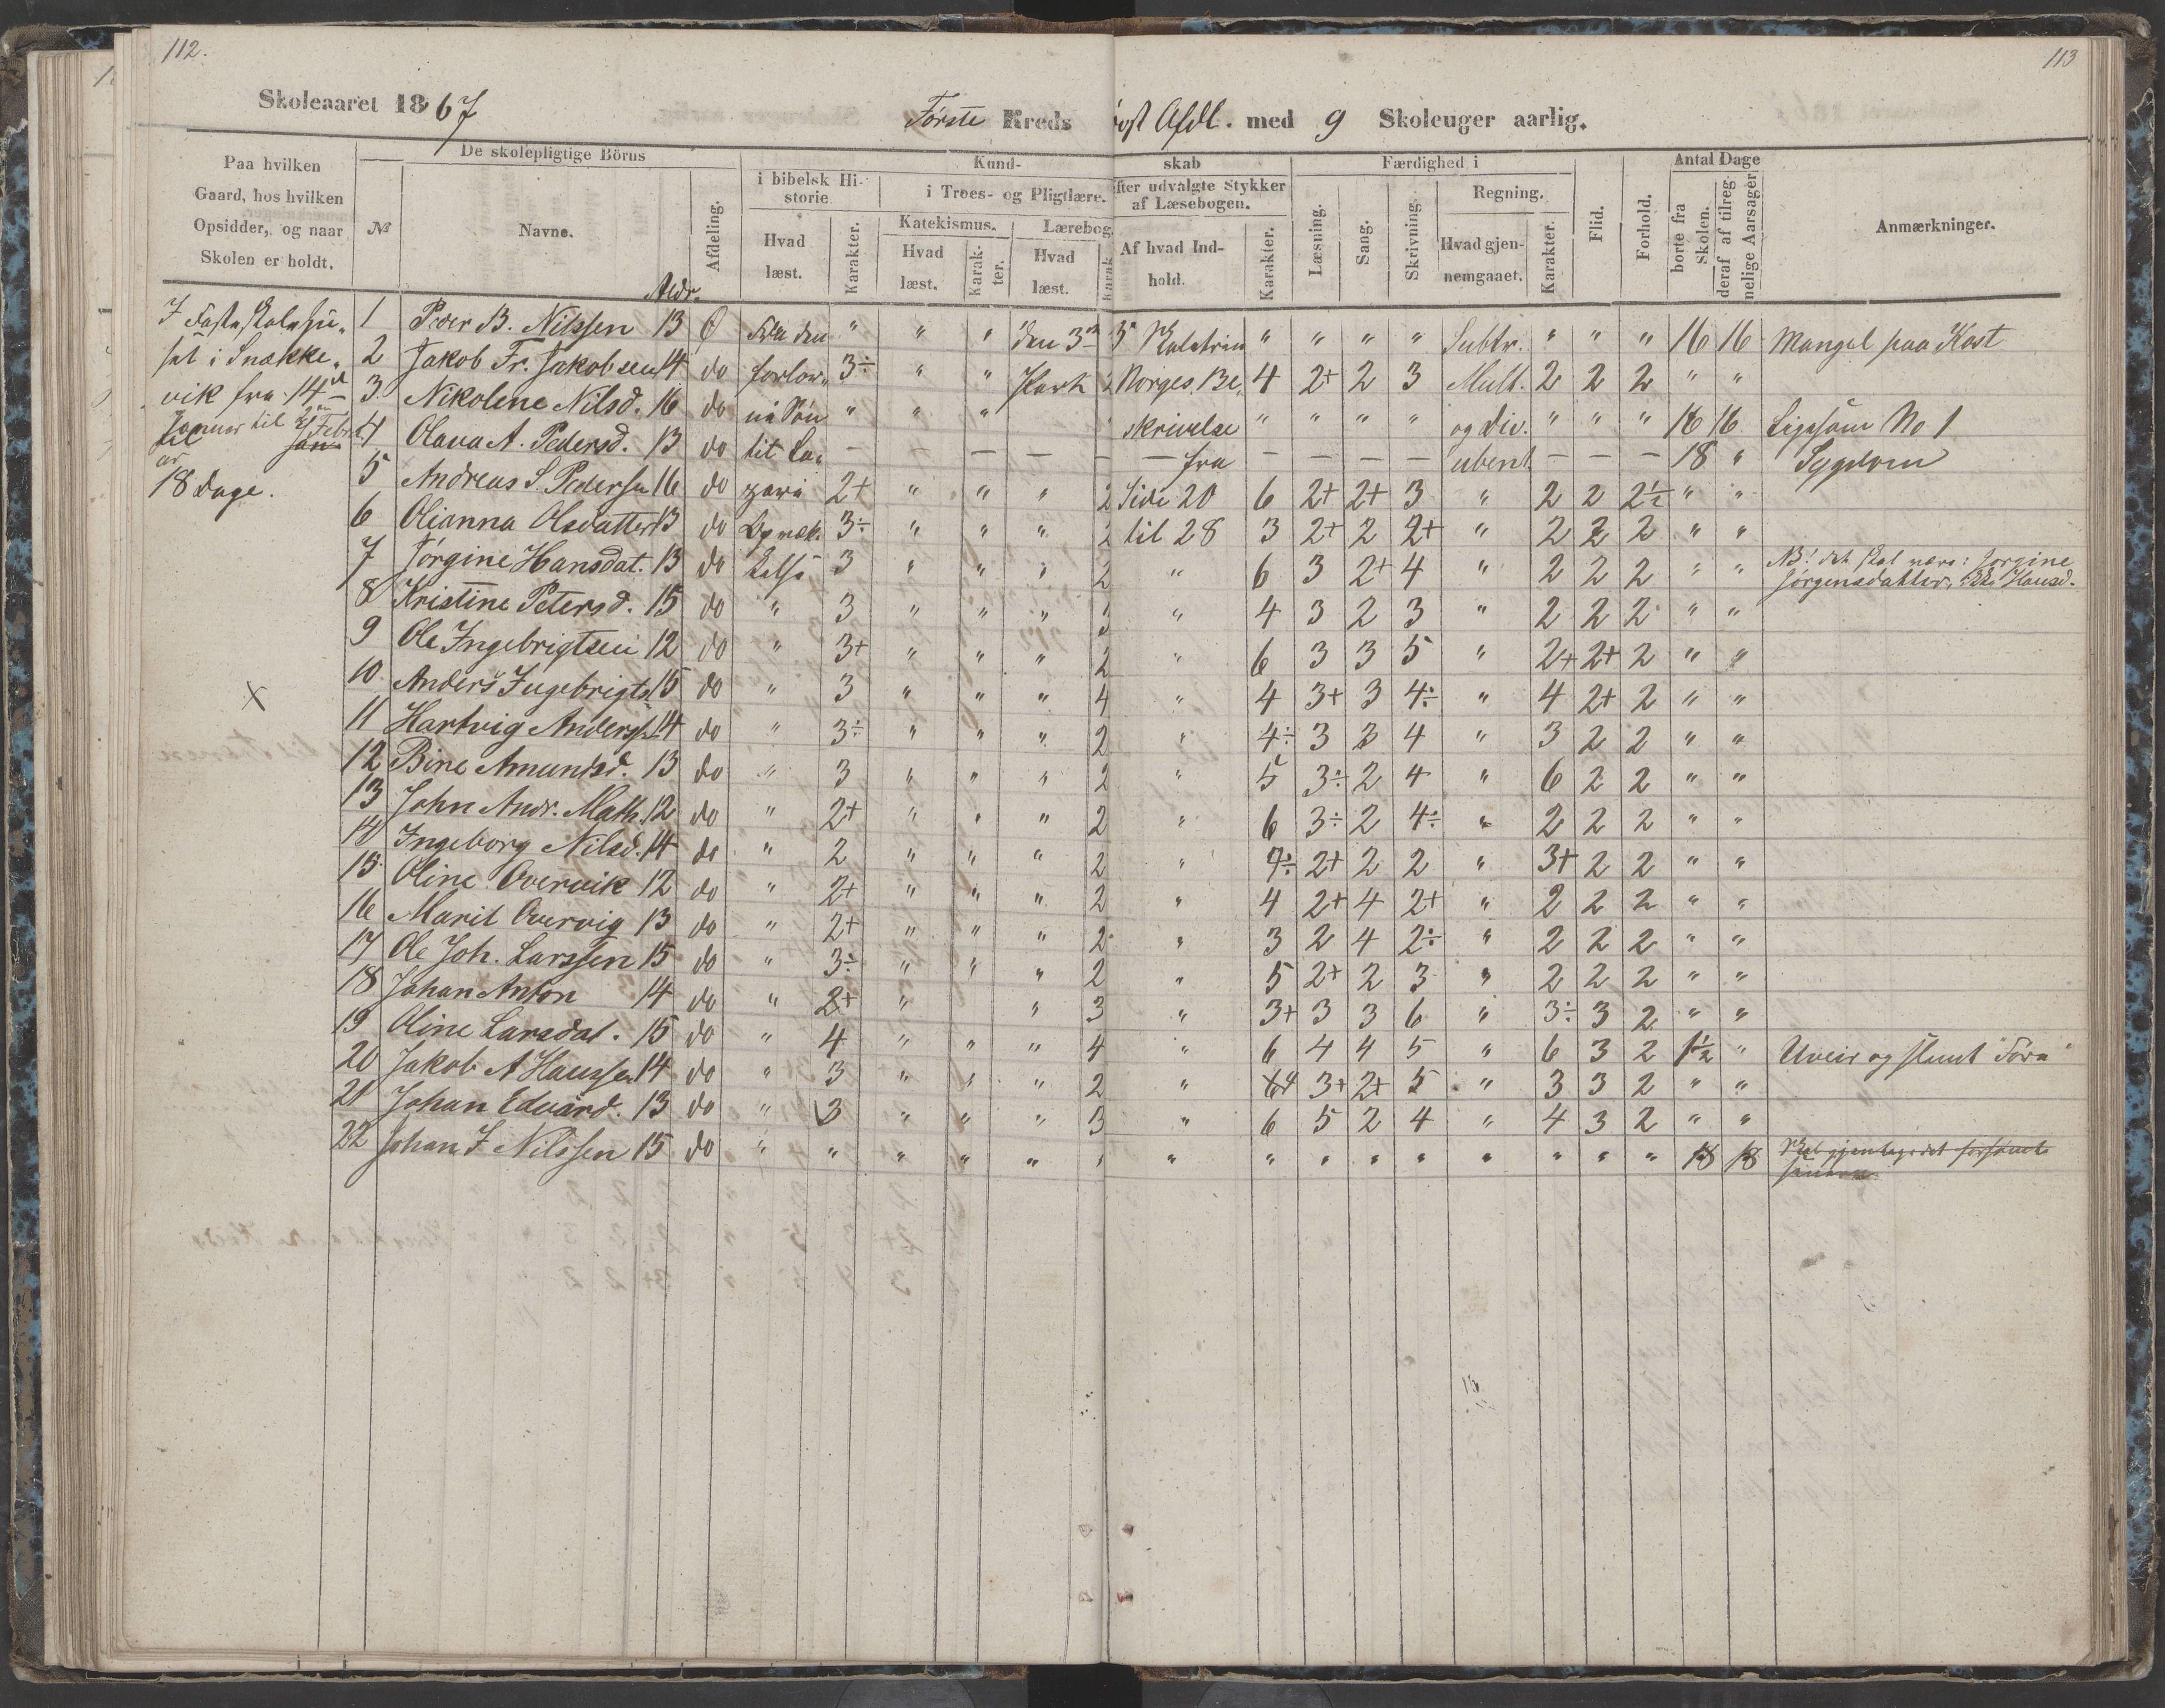 112.
113
Skoleaaret 1867
Første Kreds øst Afdl. med 9 Skoleuger aarlig.
Paa hvilken Gaard, hos hvilken Opsidder, og naar Skolen er holdt.
De skolepligtige Börns
№
Navne.
Aldr.
Afdeling.
Kund-
skab
i bibelsk Hi-
storie
Hvad læst.
Karakter.
i Troes- og Pligtlære.
Katekismus.
Hvad læst.
Karak-
ter.
Lærebog.
Hvad læst.
Karak
efter udvalgte Stykker
af Læsebogen.
Af hvad Ind-
hold.
Karakter.
Færdighed i
Læsning.
Sang.
Skrivning.
Regning.
Hvad gjen-
nemgaaet.
Karakter.
Flid.
Forhold.
Antal Dage
borte fra Skolen.
deraf af tilreg-
nelige Aarsager
Anmærkninger.
I Fasteskolehu-
set i Snække-
vik fra 14
Januar til 2 Febr.
til Jan
ar
18 Dage.
1 Peder B. Nilssen 13 Ø Fra den " " " den 3 3 " " " " Subtr. " " " 16 16 Mangel paa Kost
2 Jakob Fr. Jakobsen 14 do forlor- 3÷ " " Part 2 Norges Be 4 2+ 2 3 Mult. 2 2 2 " "
3 Nikolene Nilsd. 16 do ne Søn " " " skrivelse " " " " og Div. " " " 16 16 Ligesom No 1
4 Olava A. Pedersd. 13 do til La- — — — — — — fra — — — — ubent — — — 18 " Sygdom
5 Andreas S. Pedersn 16 do zari 2+ " " " 2 Side 20 6 2+ 2+ 3 " 2 2 2½ " "
6 Olianna Olsdatter 13 do Opvæk 3÷ " " " 2 til 28 3 2+ 2 2+ " 2 2 2 " "
7 Jørgine Hansdat. 13 do kelse 3 " " " 2 " 6 3 2+ 4 " 2 2 2 " " NB! det skal være: Jørgine
Jørgensdatter, ikke Hansd.
8 Kristine Petersd. 15 do " 3 " " " 3 " 4 3 2 3 " 2 2 2 " "
9 Ole Ingebrigtsen 12 do " 3+ " " " 2 " 6 3 3 5 " 2+ 2+ 2 " "
10 Anders Ingebrigts 15 do " 3 " " " 4 " 4 3+ 3 4÷ " 4 2+ 2 " "
X
11 Hartvig Anders. 14 do " 3÷ " " " 2 " 4÷ 3 3 4 " 3 2 2 " "
12 Bine Amundsd. 13 do " 3 " " " 2 " 5 3÷ 2 4 " 6 2 2 " "
13 John Andr. Math. 12 do " 2+ " " " 2 " 6 3÷ 2 4÷ " 2 2 2 " "
14 Ingeborg Nilsd. 14 do " 2 " " " 2 " 4÷ 2+ 2 2 " 3+ 2 2 " "
15 Oline Overvik 12 do " 2+ " " " 2 " 4 2+ 4 2+ " 2 2 2 " "
16 Marit Overvig 13 do " 2+ " " " 2 " 3 2 4 2÷ " 2 2 2 " "
17 Ole Joh. Larssen 15 do " 3÷ " " " 2 " 5 2+ 2 3 " 2 2 2 " "
18 Johan Anton 14 do " 2+ " " 3 " 3+ 3 3 6 " 3÷ 3 2 " "
19 Oline Larsdat. 15 do " 4 " " " 4 " 6 4 4 5 " 6 3 2 1½ " Uveir og slemt Føre
20 Jakob A Hanssen 14 do " 3 " " " 2 " 64 3+ 2+ 5 " 3 3 2 " "
21 Johan Edvard. 13 do " 3 " " " 3 " 6 5 2 4 " 4 3 2 " "
22 Johan J Nilssen 15 do " " " " " " " " " " " " " " " 18 18 skal gjentage det forsømte